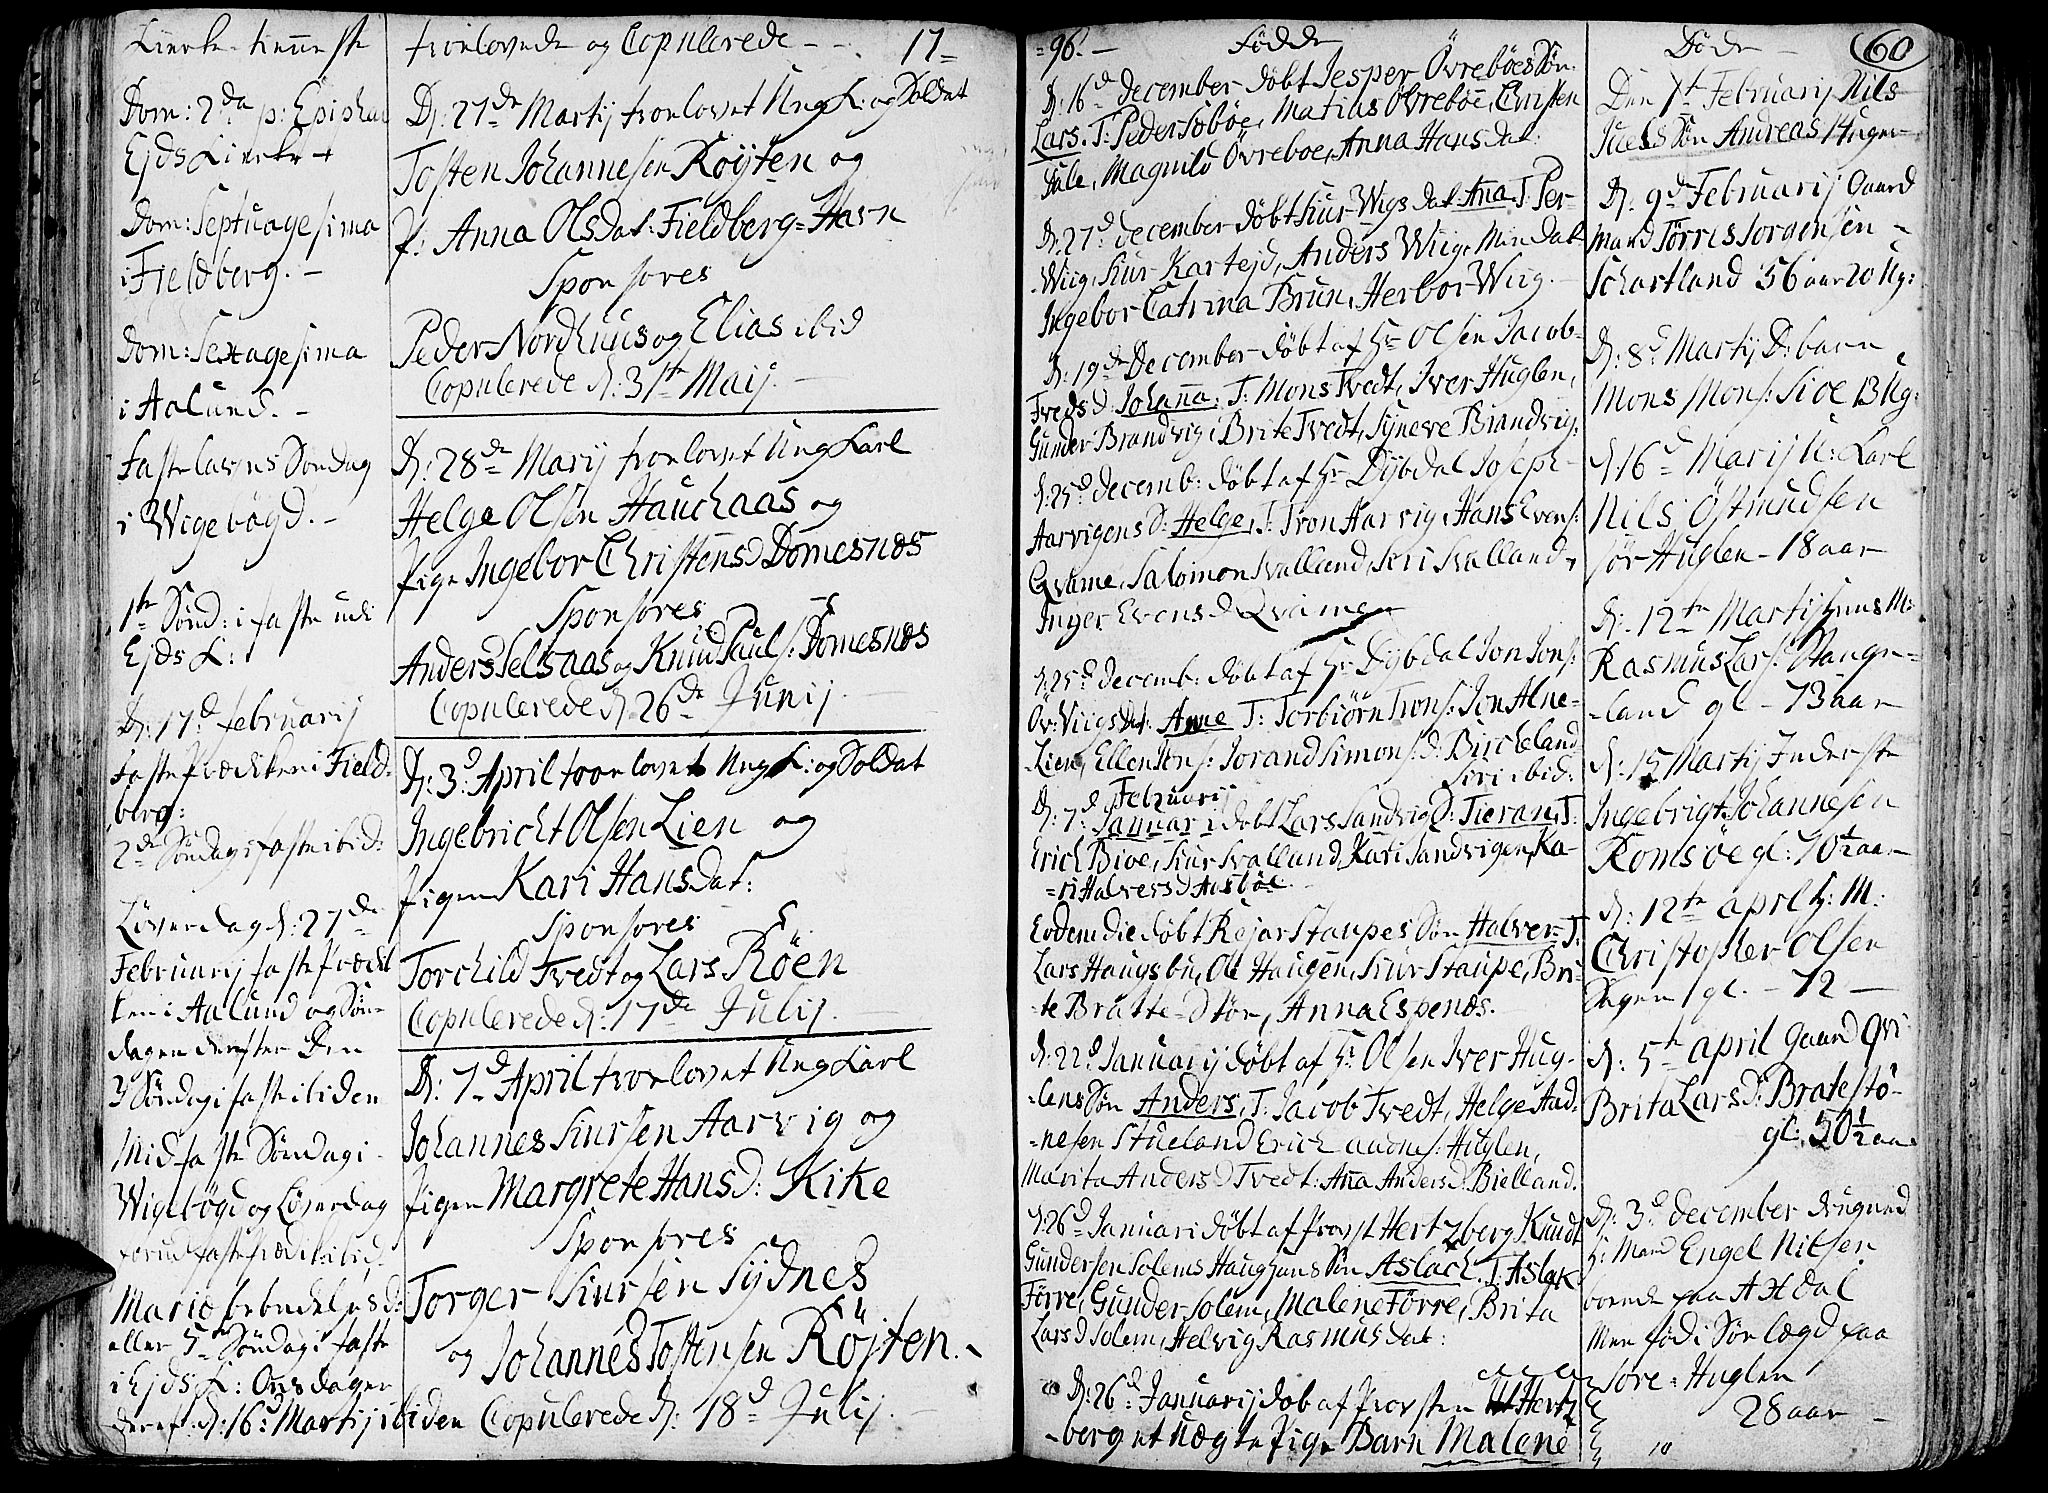 Kierke-tieneste
Dom: 2da p: Epiphan
Ejds Kierke
Dom: Septuagesima
i Fjeldberg. -
Dom: Sexagesima
i Aalund. -
Fastelavns Søndag
i Wigebøgd. -
1te Sønd: i faste udi
Ejds K:
D: 17d februarij
faste prædiken i Field-
berg:
2de Søndag i faste ibid:
Løverdag d: 27de
Februarij faste prædi-
ken i Aalund og Søn-
dagen derefter Den
3 Søndag i faste ibiden
Midfaste Søndag i
Wigebøgd og Løverdag
forud faste prædik ibid.
Mariæ bebudelses d:
eller 5te Søndag i faste
i Ejds K: Onsdagen
deref: d: 16d Martij ibiden
troelovede og Copulerede - - 17=
D: 27de Martij troelovet Ung K: og Soldat
Tosten Johannesen Røyten og
P: Anna Olsdat: Fieldberg=Havn
Sponsores
Peder Nordhuus og Elias ibid
Copulerede d: 31te Maij. -
D: 28de Marij troelovet Ung Karl
Helge Olsen Hauchaas og
Pige Ingebor Christensd Domesnæs
Sponsores
Anders Selsaas og Knud Pauls: Domesnæs
Copulerede d: 26de Junij. -
D: 3d April troelovet Ung K: og Soldat
Ingebricht Olsen Lien og
Pigen Kari Hansdat:
Sponsores
Torchild Tvedt og Lars Röen
Copulerede d: 17de Julij. -
D: 7d April troelovet Ung Karl
Johannes Siursen Aarvig og
Pigen Margrete Hansd: Kike
Sponsores
Torger Siursen Sydnes
og Johannes Tostensen Röjten. -
Copulerede d: 18d Julij. -
=96. - Födde
D: 16d December döbt Jesper Övreböes Sön
Lars. T: Peder Söböe, Matias Övreböe, Cristen
Dale, Magnild Övreboe, Anna Hansdat:
D: 27d December döbt Siur Wigs dat: Ana T: Per-
Wiig, Siur Kartejd, Anders Wiig, Min Dat
Ingebor Catrina Brun, Herbor Wiig. -
D: 19de December döbt af Hr Olsen Jacob
Tveds d: Johanna. T: Mons Tvedt, Iver Huglen,
Gunder Brandvig, Brite Tvedt, Syneve Brandvig.
D: 25d Decemb: döbt af Hr Dybdal Joseph
Aarvigens d: Helge, T: Tron Aarvig, Hans Evens:
Qvame, Salomon Svalland, Siri Svalland,
Inger Evensd Qvamen
D: 25d Decemb: döbt af Hr Dybdal Jon Jons:
Öv: Viigs dat: Anne T: Torbiörn Trons: Jon Alne-
Lien, Ellen Jons: Jorand Simons:d: Bircheland
Siri ibid.
Februarij
D: 7d Januar: döbt Lars Sandvig D: Tieran, T:
Erich Bioe, Siur Svalland, Kari Sandvigen, Ka-
=ri Halversd Aasböe.
Eodem die döbt Rejar Staupes Sön Halver T:
Lars Haugsbu, Ole Haugen, Siur Staupe, Bri-
te Bratte-Stör, Anna Espenæs.
D: 22d Januarij döbt af Hr: Olsen Iver Hug-
lens Sön Anders, T: Jacob Tvedt, Helge Aad-
=nesen Stueland Erich Aadnes: Huglen,
Marita Andersd Tvedt: Aña Andersd. Bielland.
D: 26d Januari döbt af Provst Hertzberg Knudt
Gundersen Solems Haugians Sön Aslach T: Aslak
Förre, Gunder Solem, Malene Förre, Brita
Larsd Solem, Helvig Rasmusdat:
D: 26d Januarij dob af Provsten Hertz
-berg et uægte Pige Barn Malene
Döde
60
Den 7de Februarij Nils
Juels Sön Andreas 14 uger-
D: 9d Februarij Gaard
mand Törris Jorgensen -
Schartland 56 aar 20 Ug:
D: 8d Martij D: barn
Mons Mons: Sioe 13 Ug:
D: 16d Marij U: Karl
Nils Östmudsen
sör Huglen - 18 aar
D: 12te Martij huus M:
Rasmus Lars: Nauge=
=land gl - 73 aar
D: 15 Martij Inderste
Ingebrigt Johannesen
Romsöe gl: 70½ aar
D: 12te april h: M:
Christopher Olsen
Sagen gl. - 72 -
D: 5te april gaard qvi
Brita Larsd: Bratestö-
gl: 50½ aar
D: 3d december drugned
h: Mand Engel Nilsen
boende paa A H dal
Men födi Sör lægd paa
Sore=Huglen
28 aar -
10